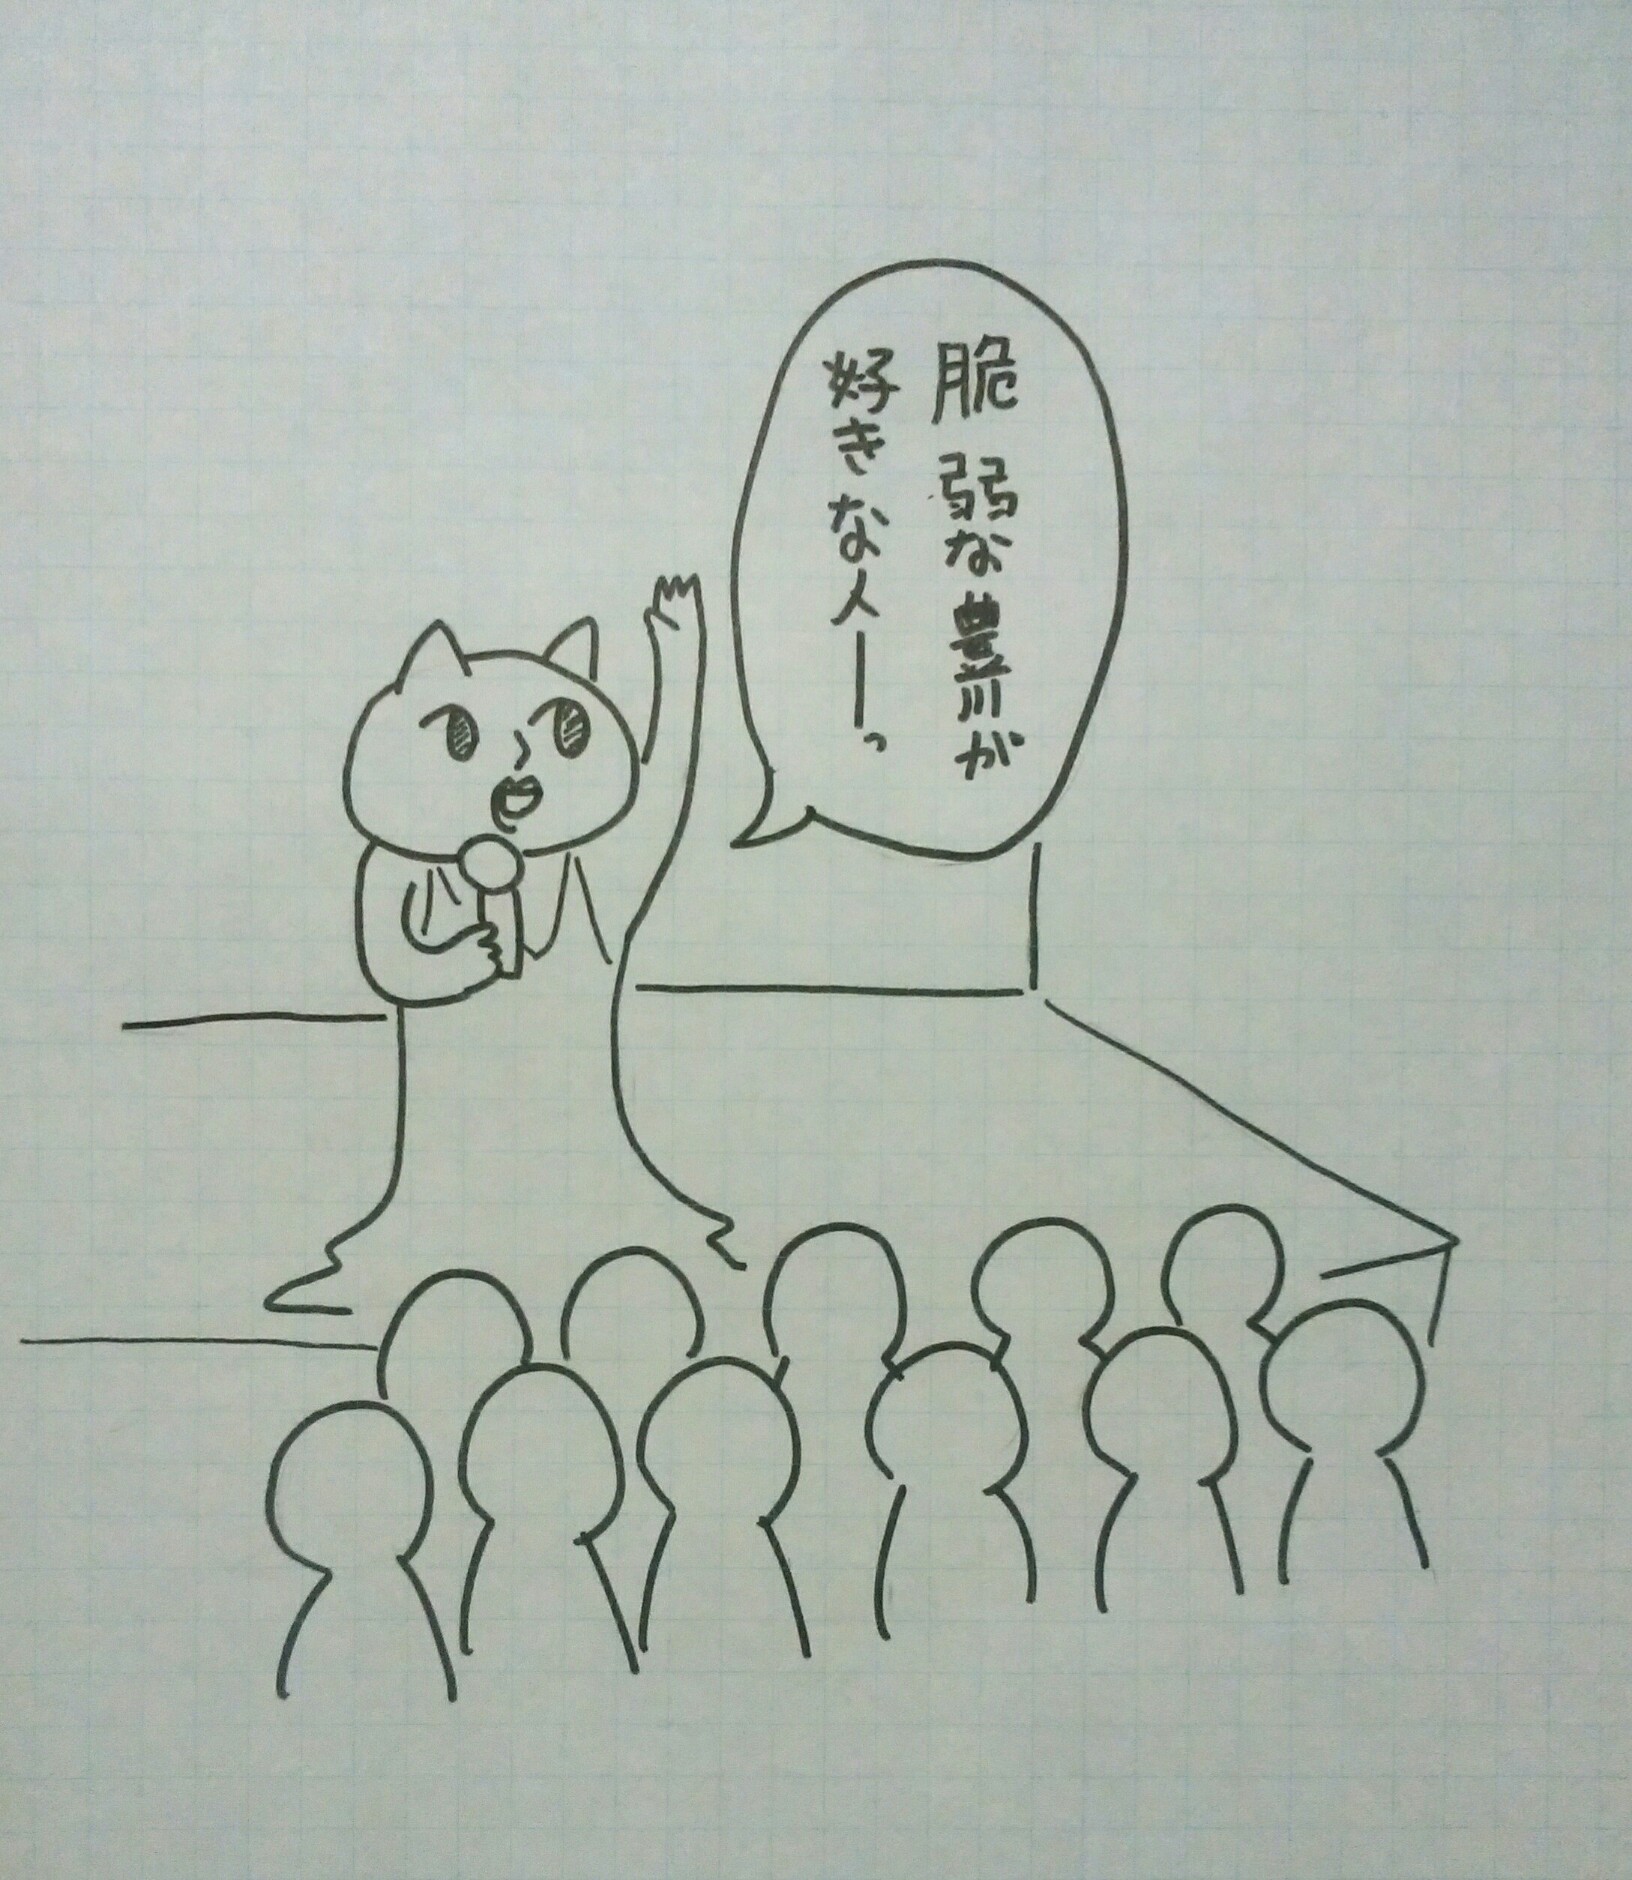 脆弱な豊川が
好きな人ーっ